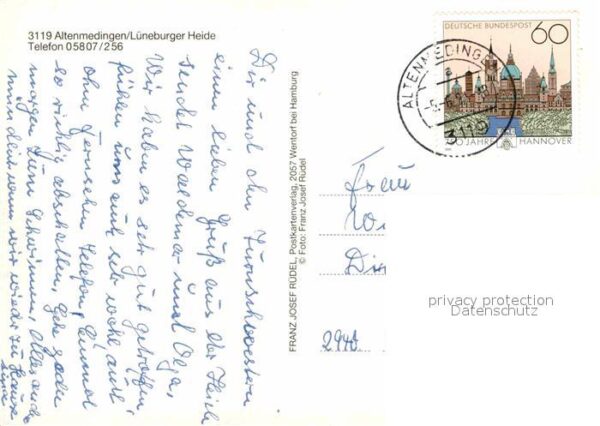 3119 Altenmedingen/Lüneburger Heide
Telefon 05807/256
Dir und den Turnschwestern
einen lieben Gruß aus der Heide
sendet Waldemar und Olga.
Wir haben es sehr gut getroffen,
fühlen uns auch sehr wohl auch
ohne Fernsehen, Telefon, Einmal
so richtig abschalten. Gehe jeden
morgen zum Schwimmen. Alles auch
wenn wir wieder zu Hause
sind
FRANZ JOSEF RÜDEL, Postkartenverlag, 2057 Wentorf bei Hamburg
© Foto: Franz Josef Rüdel
DEUTSCHE BUNDESPOST 60
750 JAHRE HANNOVER
ALTENMEDING
3119
Frau
2940
privacy protection
Datenschutz